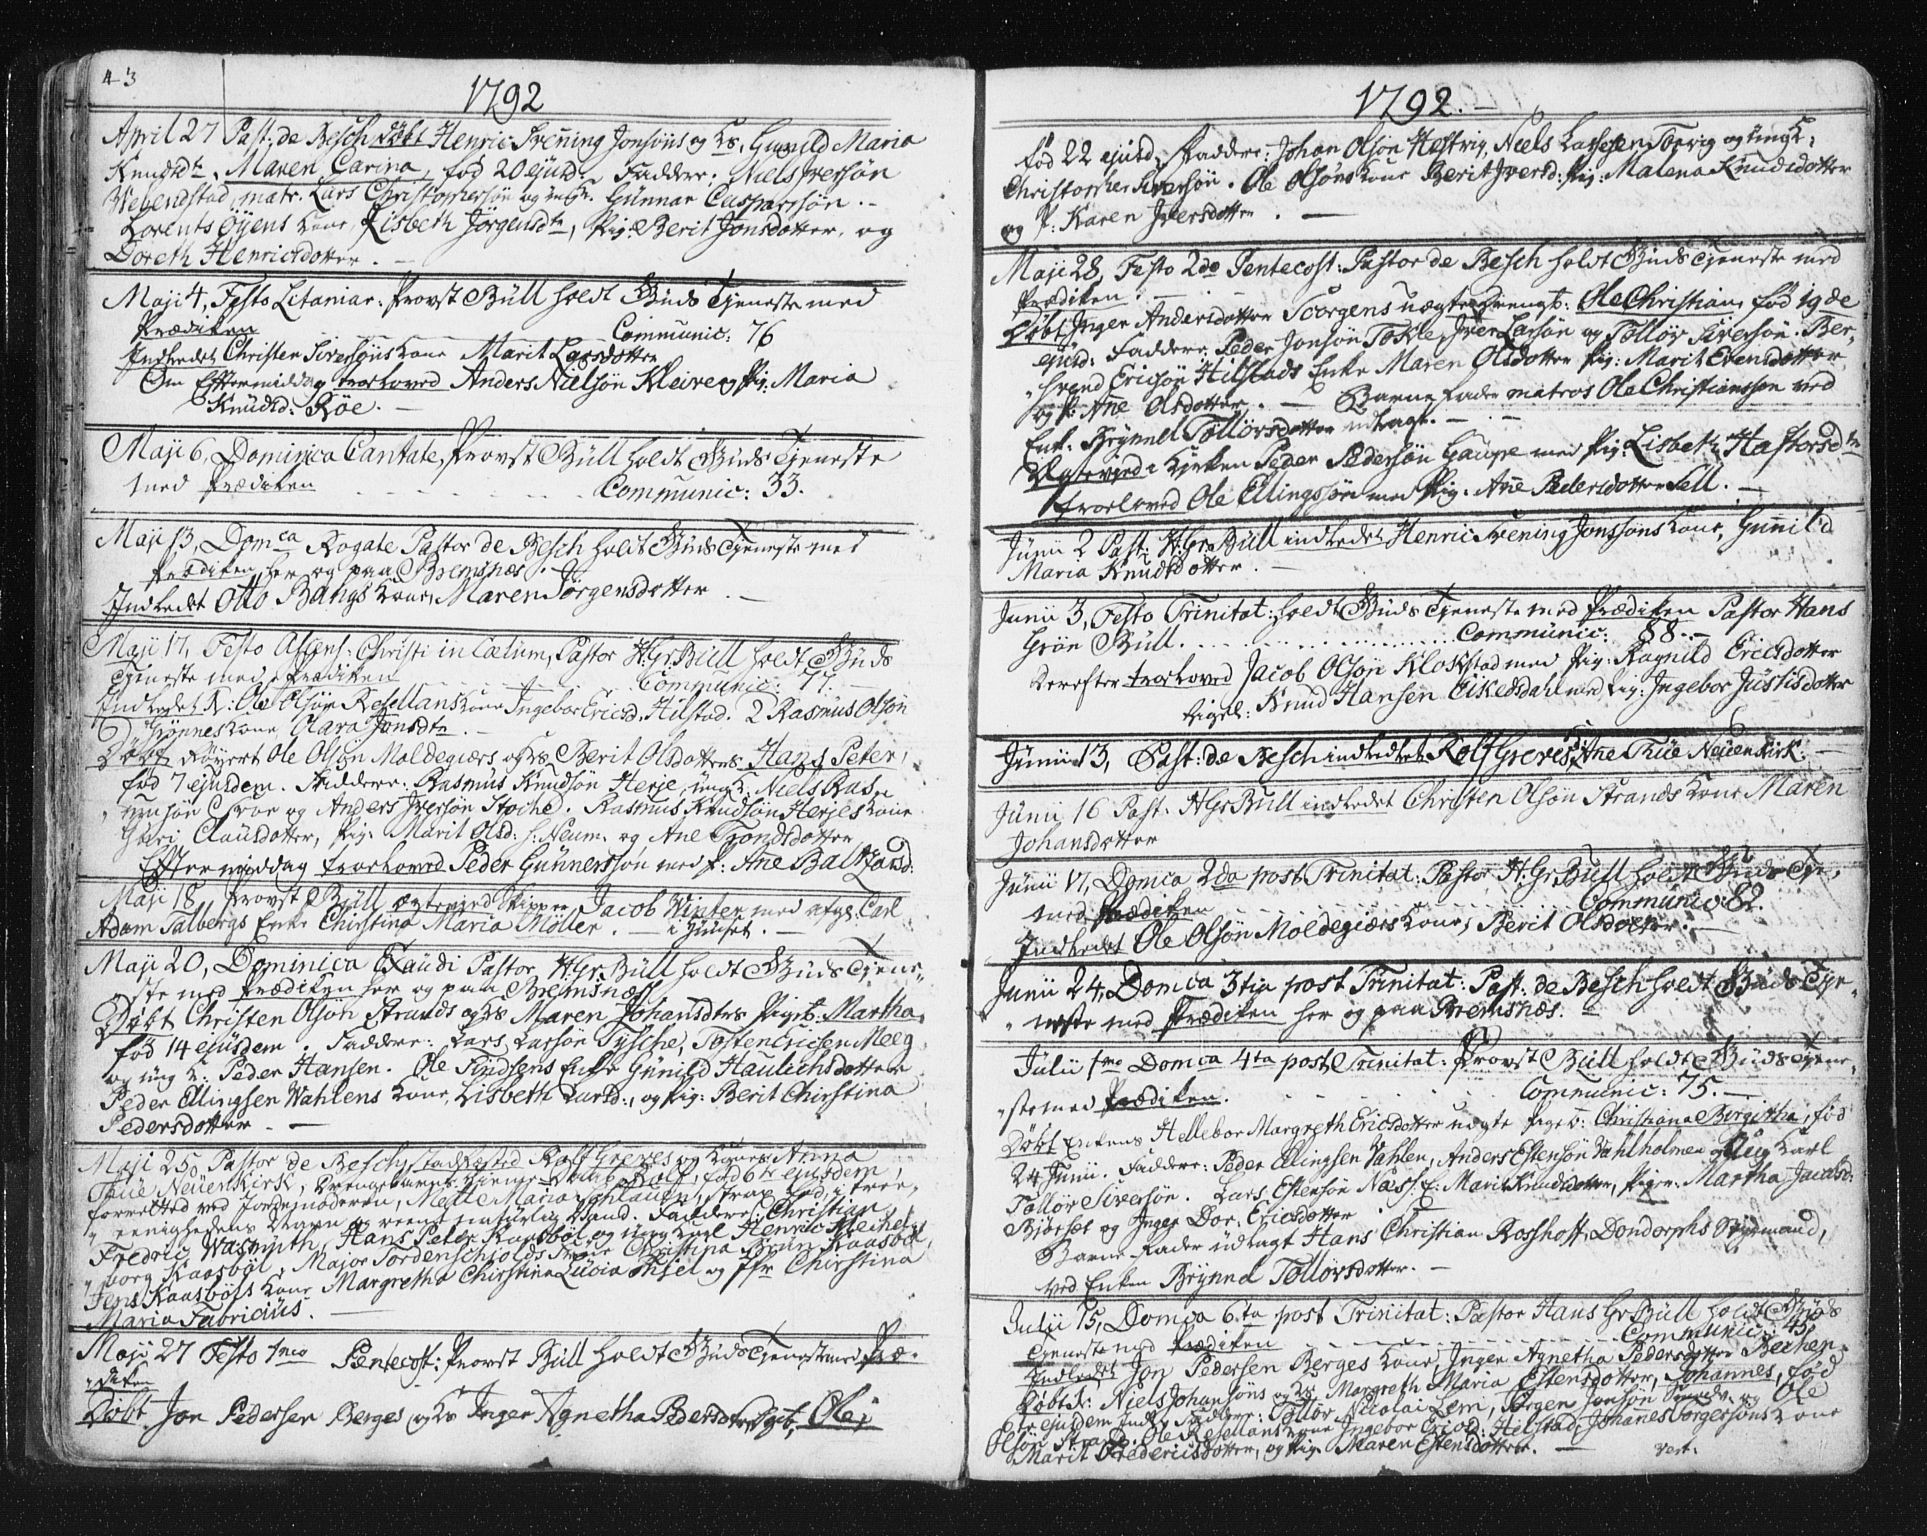 43
1792
April 27 Past: de Besch døbt Henric Svening Jonsöns og K:s, Gunild Maria
Knudsd:r Maren Carina, fød 20 ejusd. Faddere: Niels Iversön
Vebendstad, matr. Lars Christophersön og Gunnar Caspersön.
Lorents Öyens Kone, Lisbeth Jörgensd:r, Pig: Berit Jonsdotter, og
Doreth Henricsdotter.
Maji 4, Festo Litaniar: Provst Büll holdt Guds Tjeneste med
Prædiken Communic: 76
Indledet Christen Siversöns Kone Marit Larsdotter
Om Eftermiddag troeloved Anders Nielsön Kleive og Pig: Maria
Knudsd: Röe.
Maji 6, Dominica Cantate, Provst Büll holdt Guds Tjeneste
med Prædiken Communic: 33.
Maji 13, Domca Rogate Pastor de Besch holdt Guds Tjeneste med
Prædiken her og paa Bremsnæs.
Indledet Otto Bangs Kone, Maren Jörgensdotter
Maji 17, Festo Ascens: Christi in Cælum, Pastor H: Gr: Büll holdt Guds
Tjeneste med Prædiken Communic: 77.
Indledet K: Ole Olsön Resellans Kone Ingebor Ericsd. Hilstad. 2 Rasmus Olsön
Grönnes Kone, Clara Jonsdtr.
Döbt Röyert Ole Olsön Moldegiærs og K:s Berit Olsdotters Hans Peter,
fød 7 ejusdem. Faddere: Rasmus Knudsön Herje, ungk: Niels Ras,,
,,musön og Anders Iversön Stoche. Rasmus Knudsön Herjes Kone
Clausdotter, Pig: Marit Olsd: og Ane Trondsdotter
Eftermiddag troeloved Peder Gunnersson med P: Ane Baltzarsd:
Maji 18 Provst Büll ægtevied Skipper Jacob Winter med afg: Carl
Adam Talbergs Enke Christina Maria Möller. i Huuset.
Maji 20, Dominica Exaudi Pastor H: Gr: Büll holdt Guds Tjene,,
,,ste med Prædiken her og paa Bremsnæss
Döbt Christen Olsön Strands og K:s Maren Johansdtrs Pigeb: Martha,
fød 14 ejusdem. Faddere: Lars Larsön Tysche, Tosten Ericsen Meeg
og ung K: Peder Hansen. Ole Findsens Enke Gunild Haulichsdotter
Peder Ellingsen Vahlens Kone, Lisbeth Larsd:, og Pig: Berit Christina
Pedersdotter.
Maji 25, Pastor de Besch stadfæsted Rolf Greves og Kones Anna
Trüe Neuenkirk, Drengebarns Hjemme Daab, Rolf, fød 6te ejusdem,
forretted ved Jordemoderen, Mette Maria strax fød, i tree,,
,,eenighedens Navn og reent naturlig Vand. Faddere: Christian
Fredric Wasmuth, Hans Peter Kaasböl og ung Karl Henric Meinche
,,borg Kaasböl, Major Tordenschjolds Frue Christina Brun Kaasböl,
Jens Kaasböls Kone Margretha Chirstina Lucia Thiel og Jfr Chirstina
Maria Fabricius.
Maji 27 Festo 1mo Pentecost: Provst Büll holdt Guds Tjeneste med Præ,,
,,diken
Döbt Jon Pedersen Berges og K:s Inger Agnetha Pedersdotters Dgeb, Ole,
1792.
fød 22 ejusd. Faddere: Johan Olsön Hestvig, Niels Larsesen Torvig og ungk:
Christopher Siversön. Ole Olsöns Kone Berit Iversd: Pig: Malena Knudsdotter
og P: Karen Iversdotter.
Maji 28, Festo 2do Pentecost: Pastor de Besch holdt Guds Tjeneste med
Prædiken.
Döbt Inger Andersdotter Torgens uægte Drengeb: Ole Christian, fød 19de
ejusd: Faddere: Peder Jonsön Tokle, Iver Larsön og Tollör Siversön. Ber,,
Svend Ericsön Hilstads Enke Maren Olsdotter Pig: Marit Estensdotter
og P: Ane Olsdotter. Barne Fader matros Ole Christianssen ved
Enk: Brynnel Tollövsdotter udlagt.
Ægteviet i Kirken Peder Pedersön Gaupe med Pig: Lisbeth Hastorsdtr
troeloved Ole Ellingssön med Pig: Ane Pedersdotter Sell.
Junii 2 Past: H: Gr: Büll indledet Henric Svening Jonssöns Kone, Gunild
Maria Knudsdotter.
Junii 3, Festo Trinitat: holdt Guds Tjeneste med Prædiken Pastor Hans
Grön Büll. Communic: 88.
Derefter troeloved Jacob Olsön Klokstad med Pig: Ragnild Ericsdotter
ligel: Knud Hansen Eikedsdahl med Pig: Ingebor Justisdotter
Junii 13, Past: de Besch indledet Rolf Greves K: Ane Trüe Neuenkirk.
Junii 16 Past. H: Gr: Büll indledet Christen Olsön Strands Kone Maren
Johansdotter
Junii 17, Domca 2da post Trinitat: Pastor H: Gr: Büll holdt Guds Tje,,
med Prædiken Communic: 82.
Indledet Ole Olsön Moldegiærs Kone, Berit Olsdotter.
Junii 24, Domca 3tia post Trinitat: Past: de Besch holdt Guds Tje,,
,,neste med Prædiken her og paa Bremsnæs.
Julii 1mo Domca 4ta post Trinitat: Provst Büll holdt Guds Tjene,,
,,ste med Prædiken. Communic: 75.
Döbt Enkens Hellebor Margreth Ericsdotter uægte Pigeb: Christiana Bergitha, fød
24 Junii. Faddere: Peder Ellingsen Vahlen, Anders Estensön Vahlholmen og ung Karl
Tollör Siversön. Lars Estensön Næss K: Marit Knudsdotter, Piger: Martha Jacobsd:
Bjerset og Inger Dor. Ericsdotter
Barne Fader udlagt Hans Christian Rosshoff, Dondorphs Styrmand,
ved Enken Brynnel Tollövsdotter.
Julii 15, Domca 6ta post Trinitat: Pastor Hans Gr: Büll holdt Guds
Tjeneste med Prædiken Communic: 45.
Indledet Jon Pedersen Berges Kone, Inger Agnetha Pedersdotter
Döbt K: Niels Johansöns og K:s Margreth Maria Estensdotter, Johannes, fød
6te ejusdem Faddere: Tollör Nicolai Lem, Jörgen Jonsön og Ole
Olsön Strand. Ole Resellans Kone Ingebor Ericsd: Hilstad, Johanes Torgersöns Kone
Marit Fredericsdotter, og Pig: Maren Estensdotter. vert.